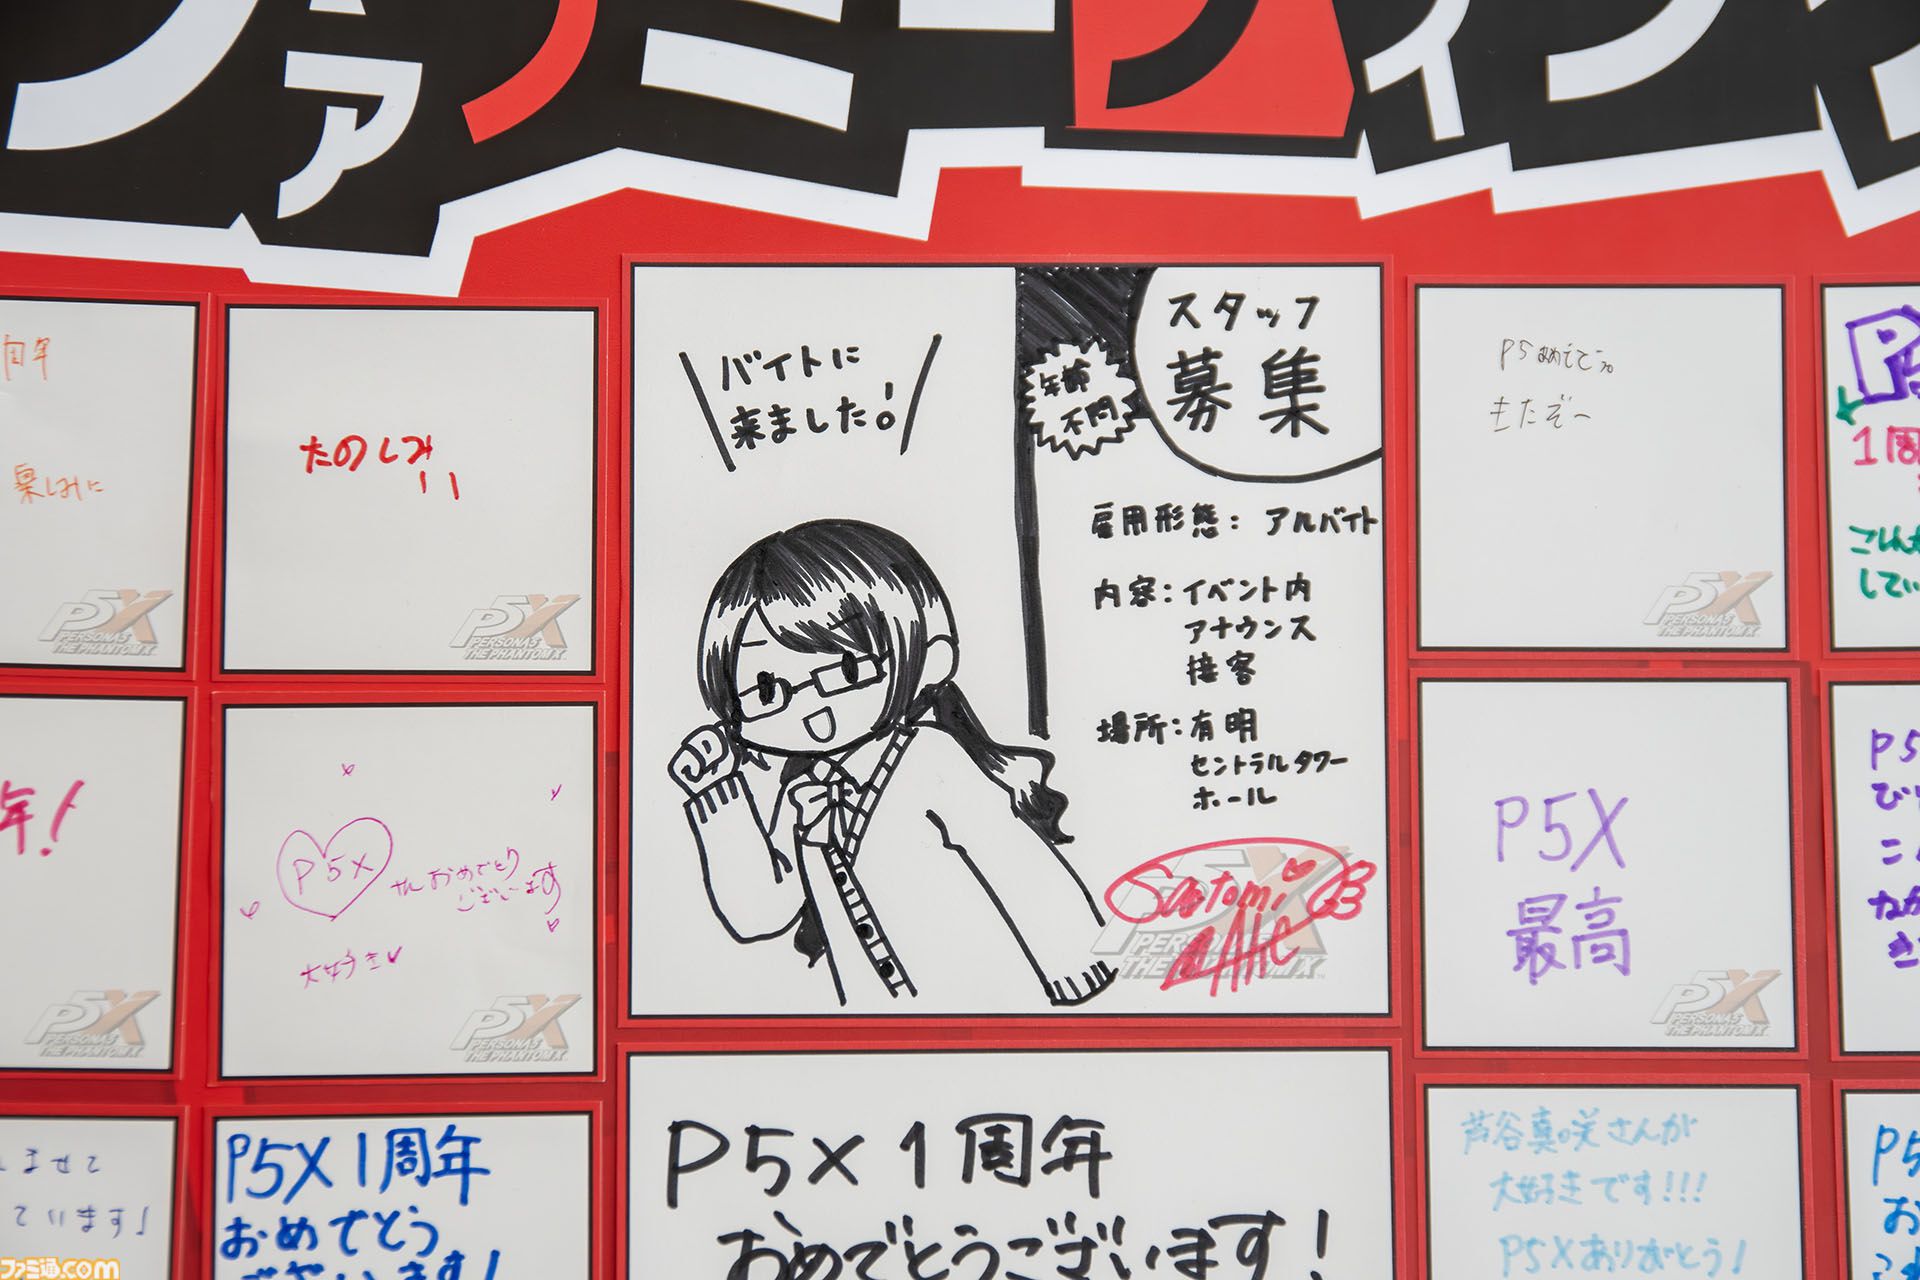 ファミーティング
周年
楽しみに
P5X
PERSONA5
THE PHANTOM X
たのしみ!!
P5X
PERSONA5
THE PHANTOM X
バイトに
来ました!
スタッフ
募集
年齢
不問
雇用形態：アルバイト
内容：イベント内
アナウンス
接客
場所：有明
セントラルタワー
ホール
Satomi
P5X
PERSONA5
THE PHANTOM X
P5おめでとう。
きたぞー
P5X
PERSONA5
THE PHANTOM X
1周
年!
P5X
PERSONA5
THE PHANTOM X
P5X
さんおめでとう
ございます
大好き
P5X
PERSONA5
THE PHANTOM X
P5X
最高
P5X
PERSONA5
THE PHANTOM X
ませて
ています!
P5X1周年
おめでとう
ございます!
P5X1周年
おめでとうございます!
芦谷真咲さんが
大好きです!!!
P5Xありがとう!
ファミ通.com